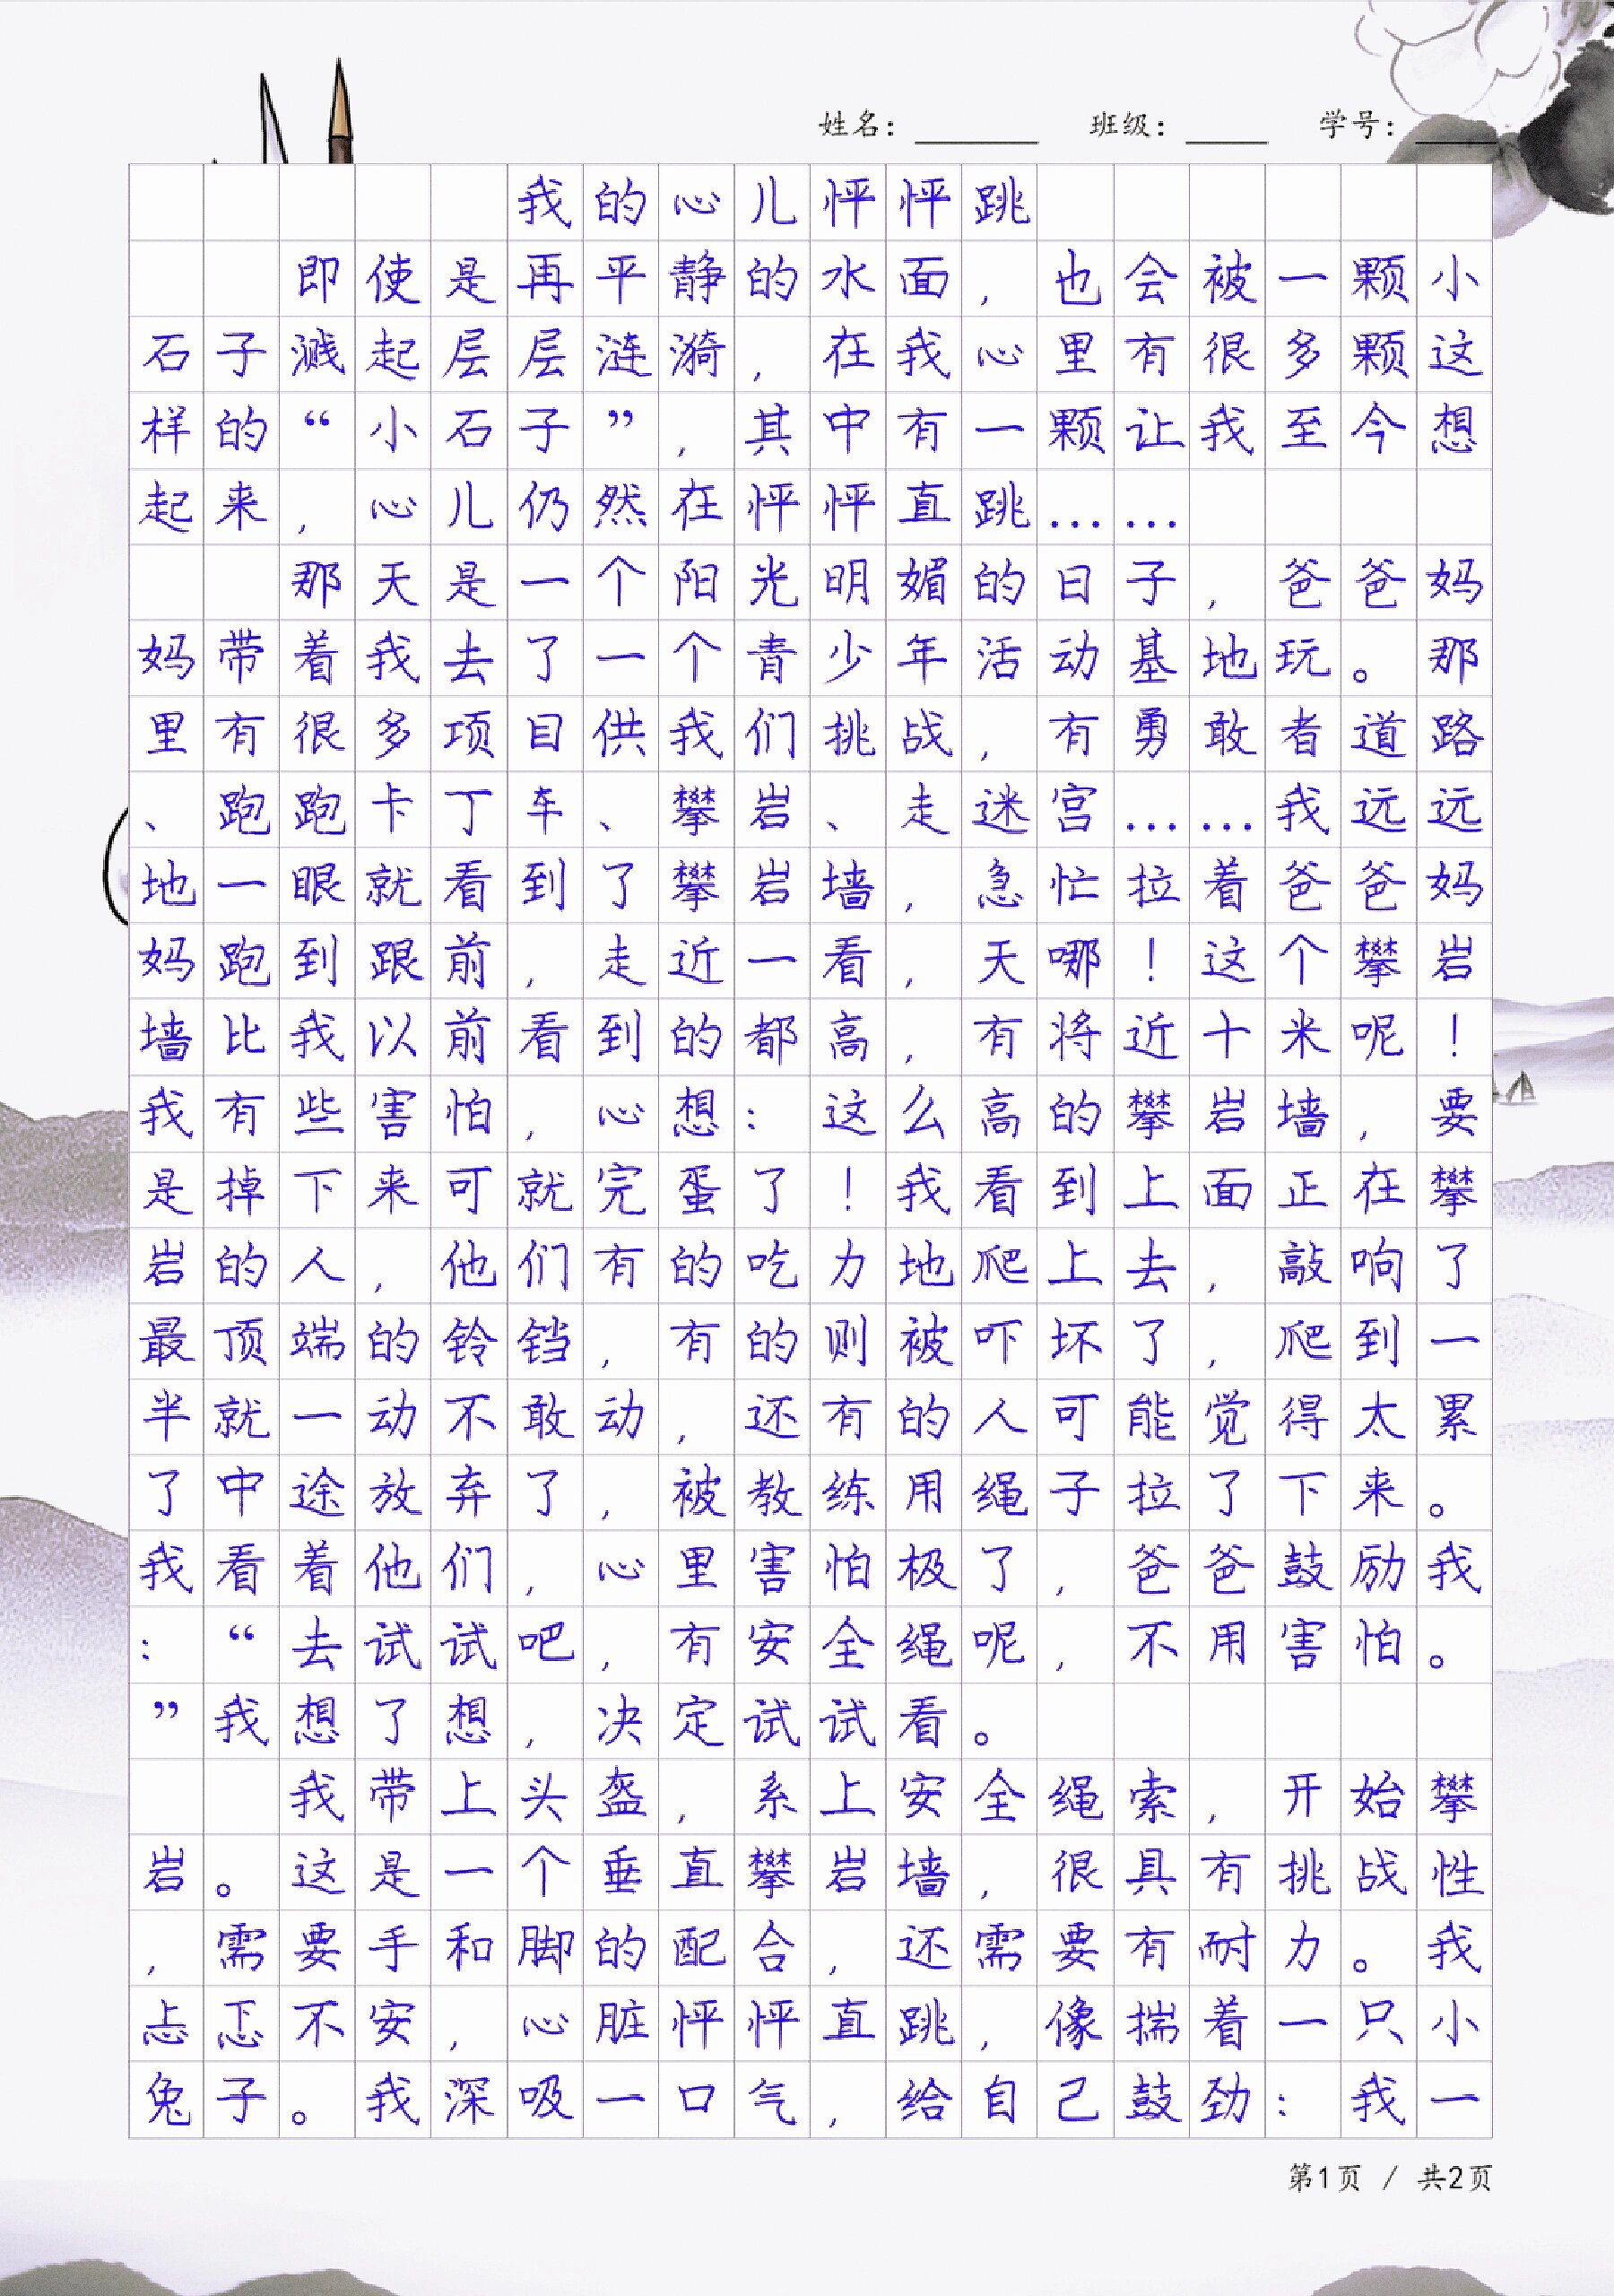 姓名： 班级： 学号：
我的心儿怦怦跳
即使是再平静的水面，也会被一颗小
石子溅起层层涟漪，在我心里有很多颗这
样的“小石子”，其中有一颗让我至今想
起来，心儿仍然在怦怦直跳……
那天是一个阳光明媚的日子，爸爸妈
妈带着我去了一个青少年活动基地玩。那
里有很多项目供我们挑战，有勇敢者道路
、跑跑卡丁车、攀岩、走迷宫……我远远
地一眼就看到了攀岩墙，急忙拉着爸爸妈
妈跑到跟前，走近一看，天哪！这个攀岩
墙比我以前看到的都高，有将近十米呢！
我有些害怕，心想：这么高的攀岩墙，要
是掉下来可就完蛋了！我看到上面正在攀
岩的人，他们有的吃力地爬上去，敲响了
最顶端的铃铛，有的则被吓坏了，爬到一
半就一动不敢动，还有的人可能觉得太累
了中途放弃了，被教练用绳子拉了下来。
我看着他们，心里害怕极了，爸爸鼓励我
：“去试试吧，有安全绳呢，不用害怕。
”我想了想，决定试试看。
我带上头盔，系上安全绳索，开始攀
岩。这是一个垂直攀岩墙，很具有挑战性
，需要手和脚的配合，还需要有耐力。我
忐忑不安，心脏怦怦直跳，像揣着一只小
兔子。我深吸一口气，给自己鼓劲：我一
第1页 / 共2页